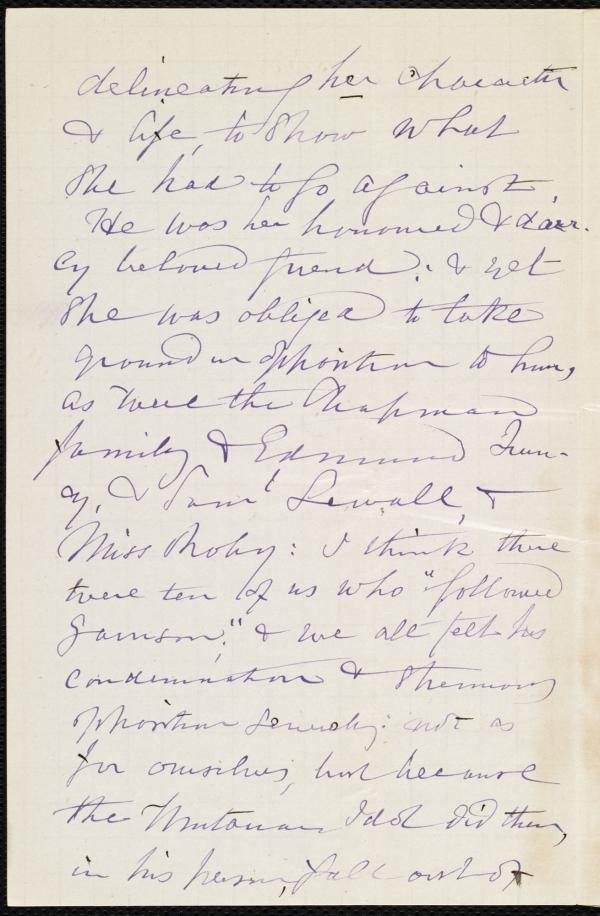 delineating her character
& life, to show what
she had to go against.
He was her honoured &
beloved friend: & yet
she was obliged to take
ground in opposition to him,
as were the Chapman
family & Edmund Quin-
cy, & Sam^l Sewall, &
Miss : I think there
were ten of us who "followed
Garrison," & we all felt his
condemnation & strenuous
opposition severely: not as
for ourselves, but because
the Unitarian Idol did then,
in his person, fall out of